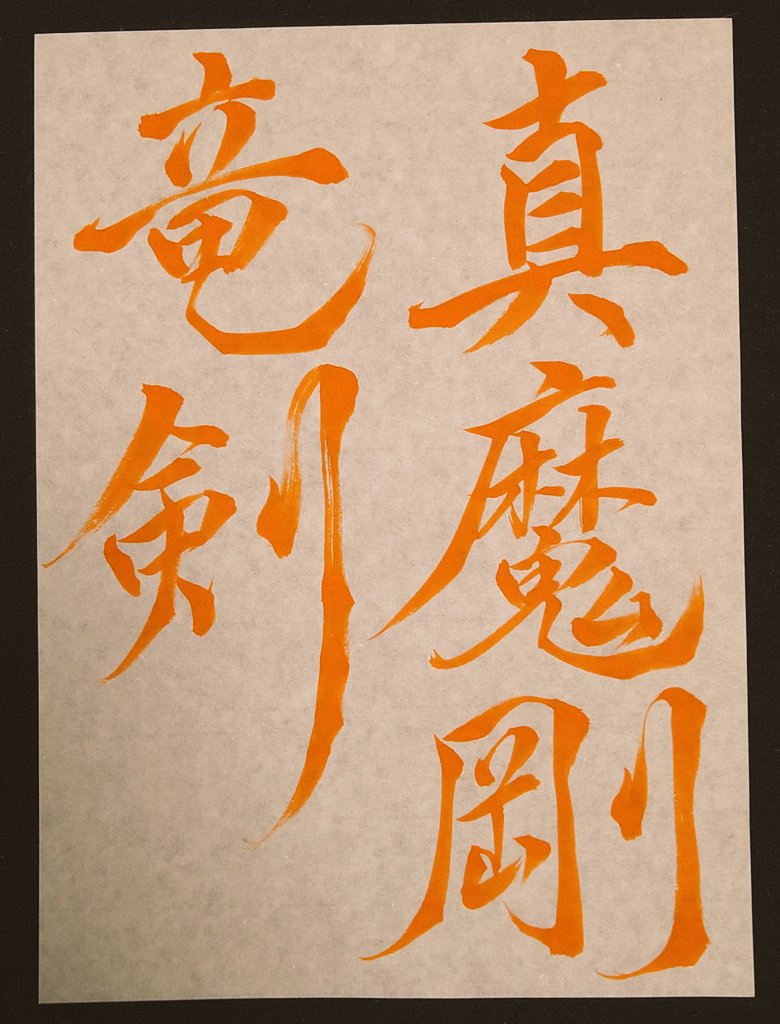 真魔剛
竜剣